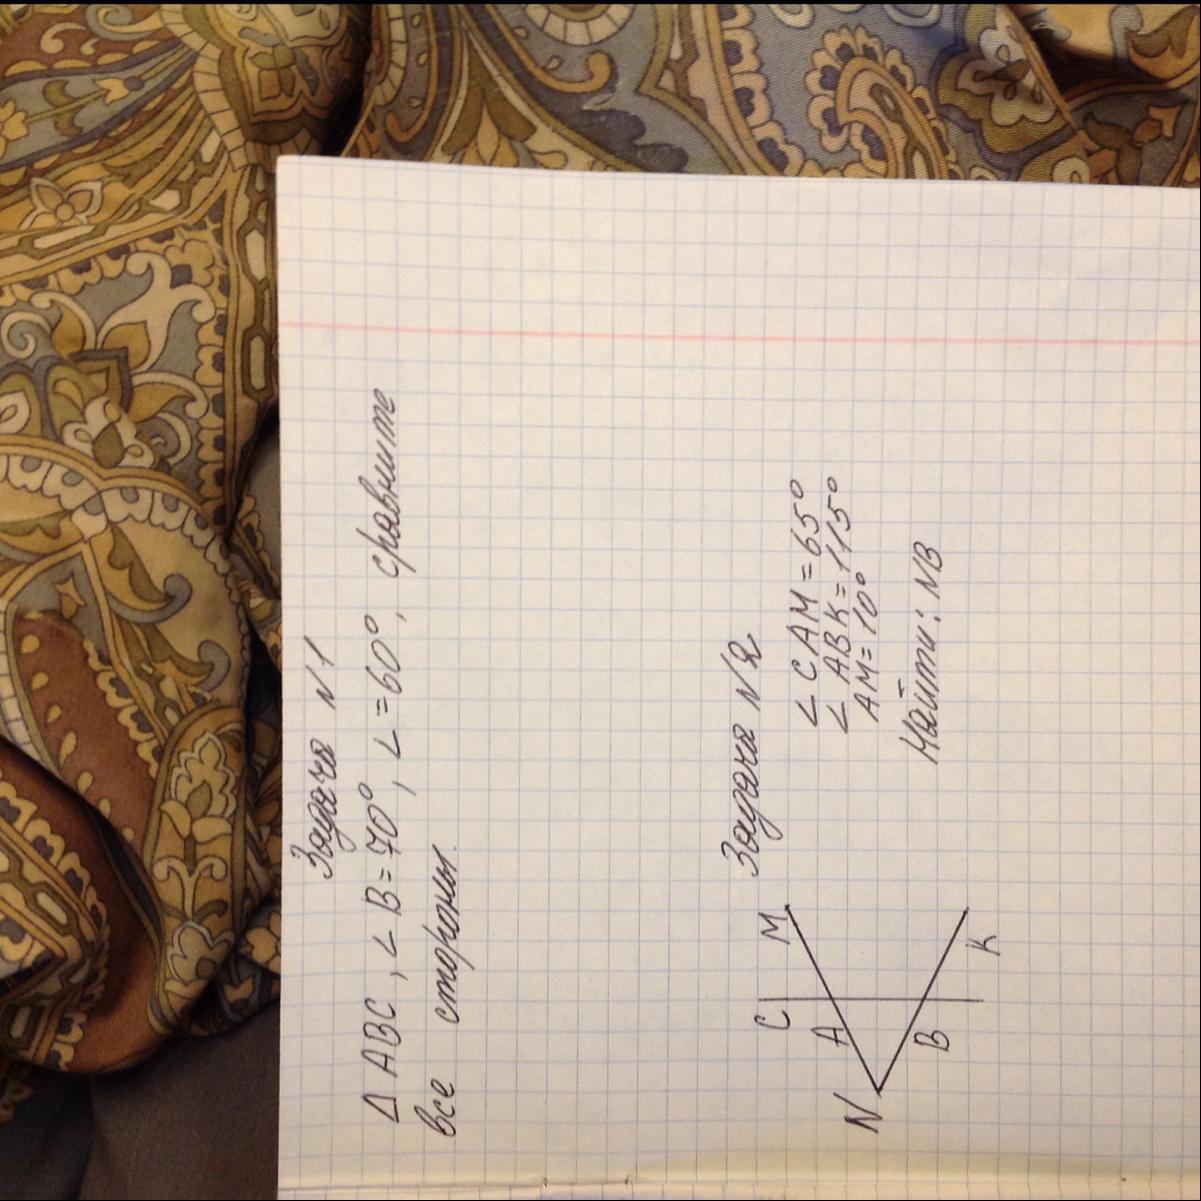 Задача N1
Δ ABC, ∠ B = 70°, ∠ = 60°, сравните
все стороны.
Задача N2
∠ CAM = 65°
∠ ABK = 115°
AM = 10°
Найти: NB
C
M
A
N
B
K